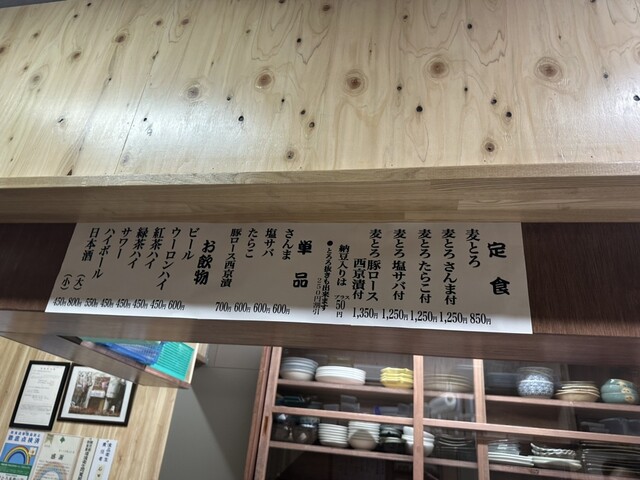 定食
麦とろ 850円
麦とろ さんま付 1,250円
麦とろ たらこ付 1,250円
麦とろ 塩サバ付 1,250円
麦とろ 豚ロース
西京漬付 1,350円
納豆入りは プラス50円
●とろろ抜きも出来ます
250円割引
単品
さんま 600円
塩サバ 600円
たらこ 600円
豚ロース西京漬 700円
お飲物
ビール 600円
ウーロンハイ 450円
紅茶ハイ 450円
緑茶ハイ 450円
サワー 450円
ハイボール 550円
日本酒 (大) 800円
(小) 450円